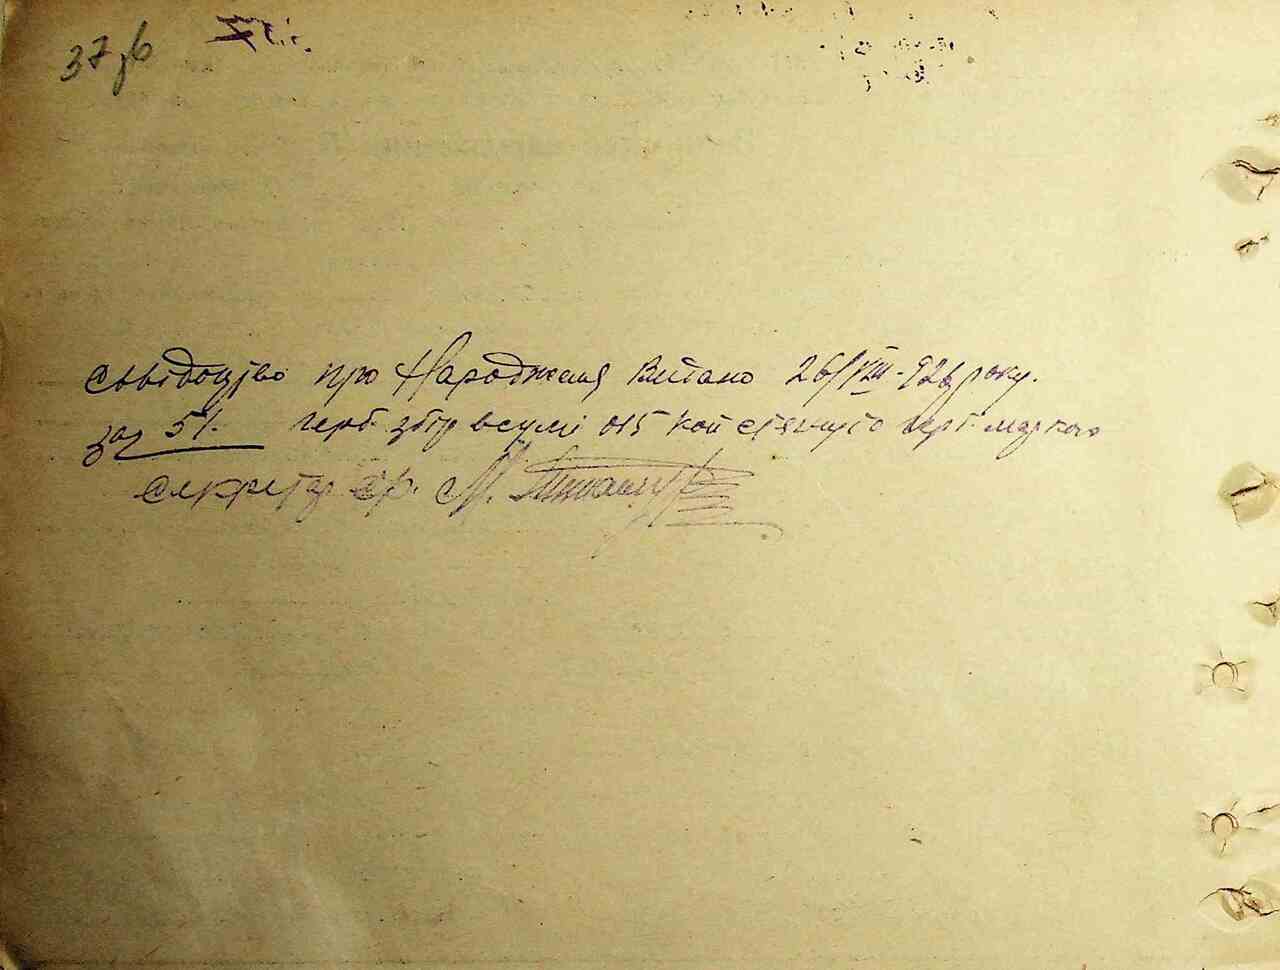 37 зв
Свідоцтво про Народження Видано 26/VIII-926 року.
за 51. герб. збір в сумі 015 коп стягнуто герб. маркою
Секретар с/р. М.